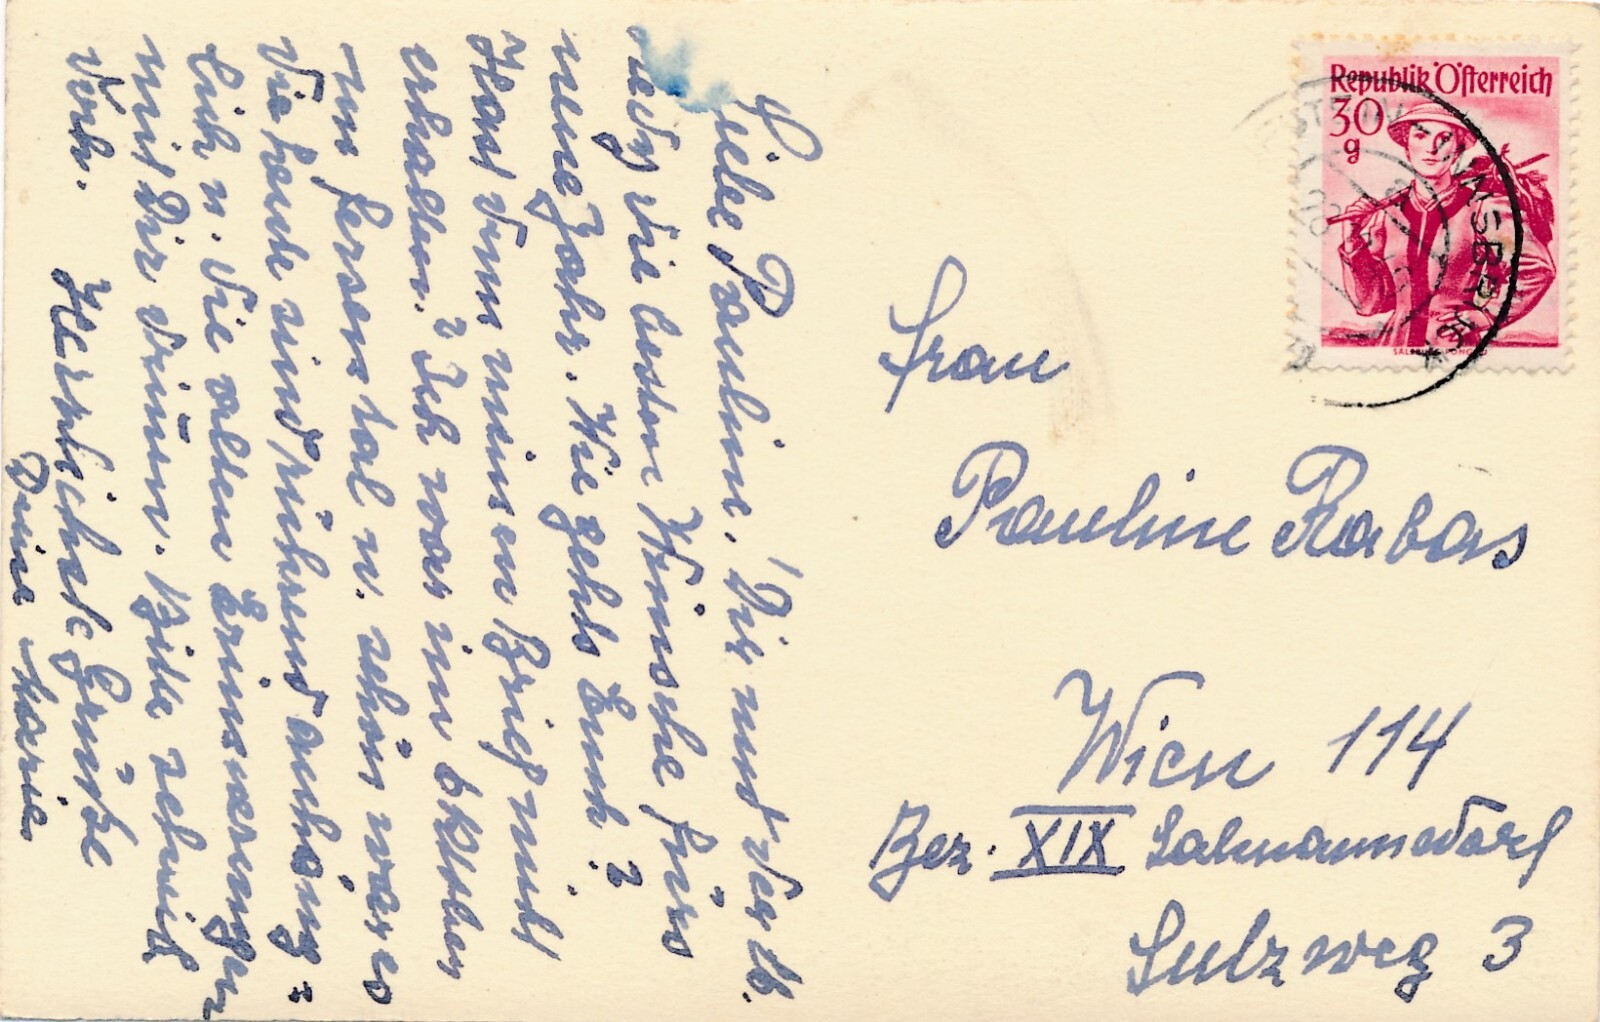 Liebe Pauline! Dir und der lb.
Medy die besten Wünsche fürs
neue Jahr. Wie gehts Euch?
Hast Denn meinen Brief nicht
erhalten? Ich war im Oktober
im Fersental u. schön war es
Die Leute sind rührend anhäng-
lich u. die alten Erinnerungen
mit Dir drinnen. Bitte schreib
doch.
Herzlichste Grüße
Deine Marie
Republik Österreich
30
g
SALZBURG, PONGAU
INNSBRUCK
Frau
Pauline Rabas
Wien 114
Bez. XIX Salmannsdorf
Sulzweg 3